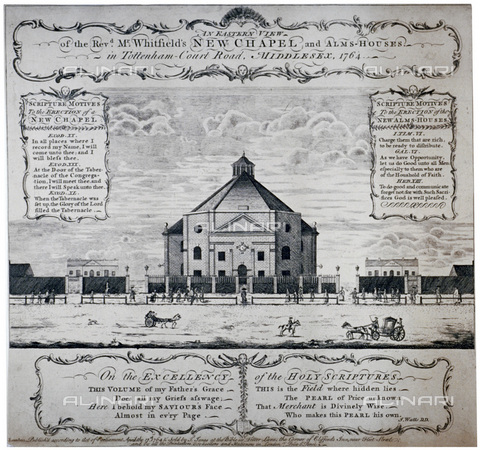 AN EASTERN VIEW
of the Revd. Mr. Whitfield's NEW CHAPEL and ALMS-HOUSES
in Tottenham-Court Road, MIDDLESEX, 1764
SCRIPTURE MOTIVES
To the ERECTION of a
NEW CHAPEL
EXOD. XX.
In all places where I
record my Name, I will
come unto thee, and I
will bless thee.
EXOD. XXIX.
At the Door of the Taber-
nacle of the Congrega-
tion, I will meet thee, and
there I will Speak unto thee.
EXOD. XL.
When the Tabernacle was
set up, the Glory of the Lord
filled the Tabernacle
SCRIPTURE MOTIVES
To the ERECTION of the
NEW ALMS-HOUSES
I TIM. VI.
Charge them that are rich,
to be ready to distribute.
GAL. VI.
As we have Opportunity,
let us do Good unto all Men
specially to them who are
of the Houshold of Faith.
HEB. XIII.
To do good and communicate
forget not, for with Such Sacri-
fices God is well pleased.
On the EXCELLENCY of the HOLY SCRIPTURES
THIS VOLUME of my Fathers Grace
Does all my Griefs asswage;
Here I behold my SAVIOURS Face
Almost in ev'ry Page
THIS is the Field where hidden lies
The PEARL of Price unknown,
That Merchant is Divinely Wise
Who makes this PEARL his own.
I. Watts D.D.
London, Publish'd according to Act of Parliament
ALINARI
ALINARI
ALINARI
ALINARI
ALINARI